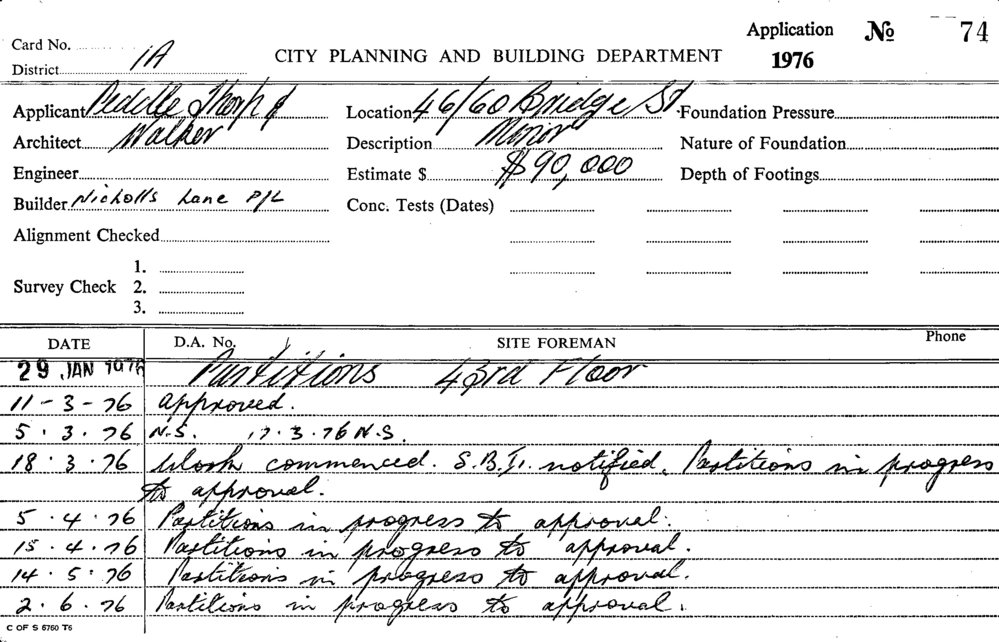 Application No 74
Card No.
1976
CITY PLANNING AND BUILDING DEPARTMENT
District 1A
Applicant Peddle Thorp & Location 46/60 Bridge St. Foundation Pressure
Architect Walker Description Minor Nature of Foundation
Engineer Estimate $ $90,000 Depth of Footings
Builder Nicholls Lane P/L Conc. Tests (Dates)
Alignment Checked
1.
Survey Check 2.
3.
DATE D.A. No. SITE FOREMAN Phone
29 JAN 1976 Partitions 43rd Floor
11-3-76 approved.
5.3.76 N.S. 17.3.76 N.S.
18.3.76 Work commenced. S.B.I. notified. Partitions in progress
to approval.
5.4.76 Partitions in progress to approval.
15.4.76 Partitions in progress to approval.
14.5.76 Partitions in progress to approval.
2.6.76 Partitions in progress to approval.
C OF S 6760 T6